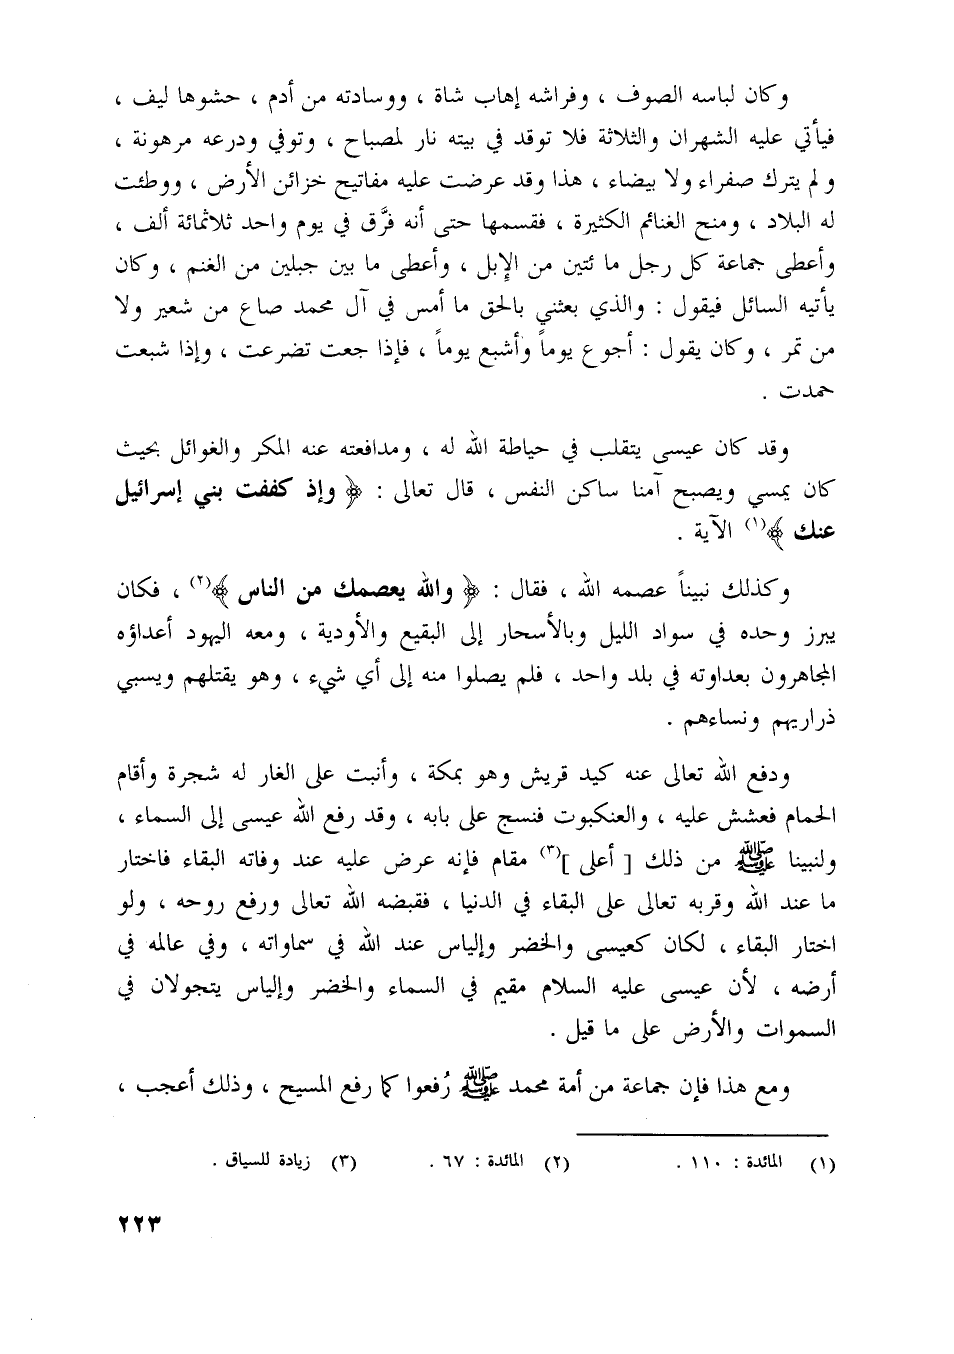 وكان لباسه الصوف ، وفراشه إهاب شاة ، ووسادته من أدم ، حشوها ليف ،
فيأتي عليه الشهران والثلاثة فلا توقد في بيته نار لمصباح ، وتوفي ودرعه مرهونة ،
ولم يترك صفراء ولا بيضاء ، هذا وقد عرضت عليه مفاتيح خزائن الأرض ، ووطئت
له البلاد ، ومنح الغنائم الكثيرة ، فقسمها حتى أنه فرَّق في يوم واحد ثلاثمائة ألف ،
وأعطى جماعة كل رجل ما ئتين من الإبل ، وأعطى ما بين جبلين من الغنم ، وكان
يأتيه السائل فيقول : والذي بعثني بالحق ما أمس في آل محمد صاع من شعير ولا
من تمر ، وكان يقول : أجوع يوماً وأشبع يوماً ، فإذا جعت تضرعت ، وإذا شبعت
حمدت .
وقد كان عيسى يتقلب في حياطة الله له ، ومدافعته عنه المكر والغوائل بحيث
كان يمسي ويصبح آمنا ساكن النفس ، قال تعالى : ﴿ وإذ كففت بني إسرائيل
عنك ﴾(١) الآية .
وكذلك نبيناً عصمه الله ، فقال : ﴿ والله يعصمك من الناس ﴾(٢) ، فكان
يبرز وحده في سواد الليل وبالأسحار إلى البقيع والأودية ، ومعه اليهود أعداؤه
المجاهرون بعداوته في بلد واحد ، فلم يصلوا منه إلى أي شيء ، وهو يقتلهم ويسبي
ذراريهم ونساءهم .
ودفع الله تعالى عنه كيد قريش وهو بمكة ، وأنبت على الغار له شجرة وأقام
الحمام فعشش عليه ، والعنكبوت فنسج على بابه ، وقد رفع الله عيسى إلى السماء ،
ولنبينا ﷺ من ذلك [ أعلى ](٣) مقام فإنه عرض عليه عند وفاته البقاء فاختار
ما عند الله وقربه تعالى على البقاء في الدنيا ، فقبضه الله تعالى ورفع روحه ، ولو
اختار البقاء ، لكان كعيسى والخضر وإلياس عند الله في سماواته ، وفي عالمه في
أرضه ، لأن عيسى عليه السلام مقيم في السماء والخضر وإلياس يتجولان في
السموات والأرض على ما قيل .
ومع هذا فإن جماعة من أمة محمد ﷺ رُفعوا كما رفع المسيح ، وذلك أعجب ،
(١) المائدة : ١١٠ . (٢) المائدة : ٦٧ . (٣) زيادة للسياق .
٢٢٣